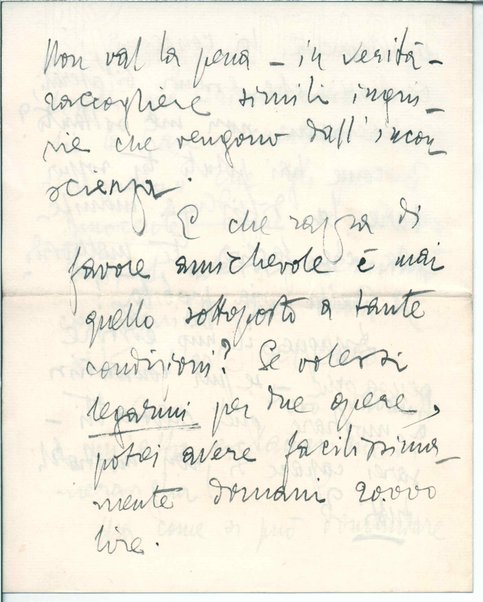 Non val la pena – in verità –
raccogliere simili ingiu-
rie che vengono dall'incon
scienza.
E che razza di
favore amichevole è mai
quello sottoposto a tante
condizioni? Se volessi
legarmi per due opere,
potrei avere facilissima-
mente domani 20.000
lire.